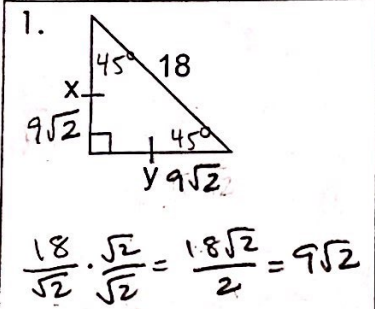 1.
45° 18
x
9√2
45°
y 9√2
18/√2 · √2/√2 = 18√2/2 = 9√2